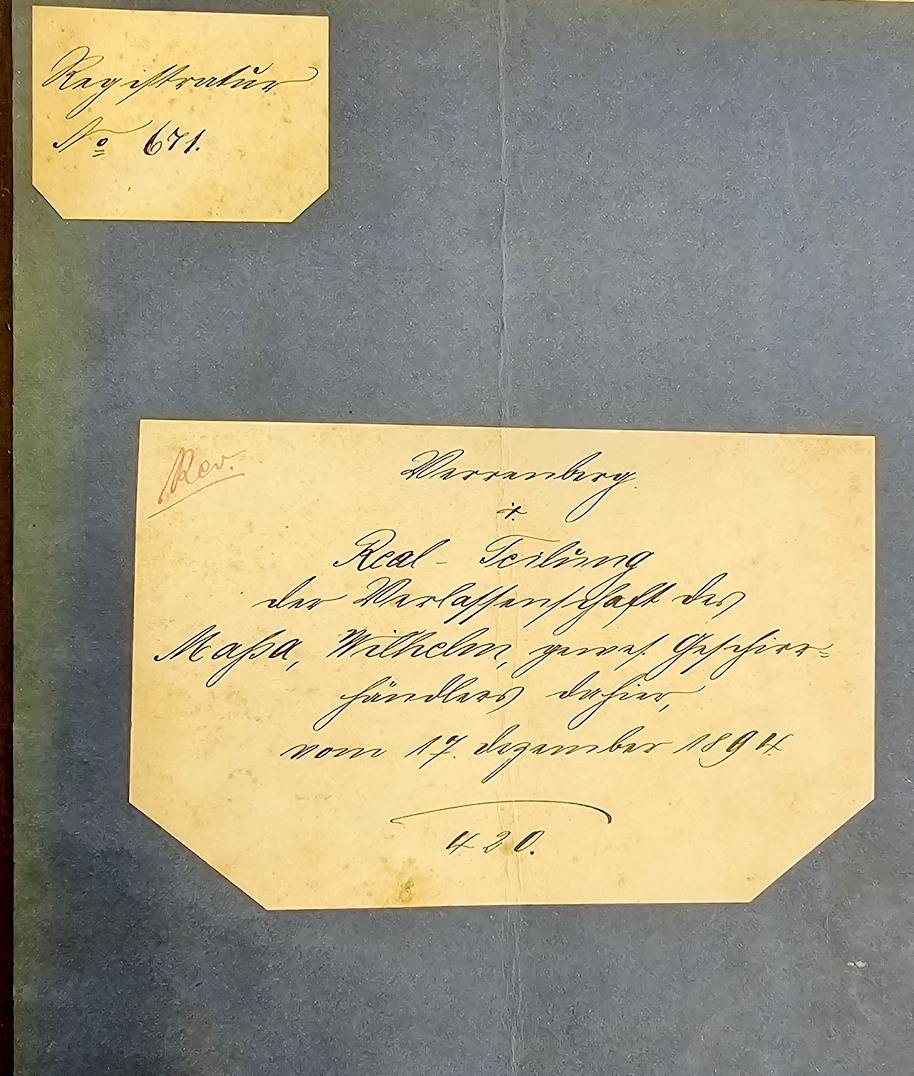 Registratur
No 671.
Rev.
Verrenberg.
+.
Real-Teilung
der Verlassenschaft des
Maßa, Wilhelm, gewes. Geschirr=
händlers dahier,
vom 17. Dezember 1894.
420.